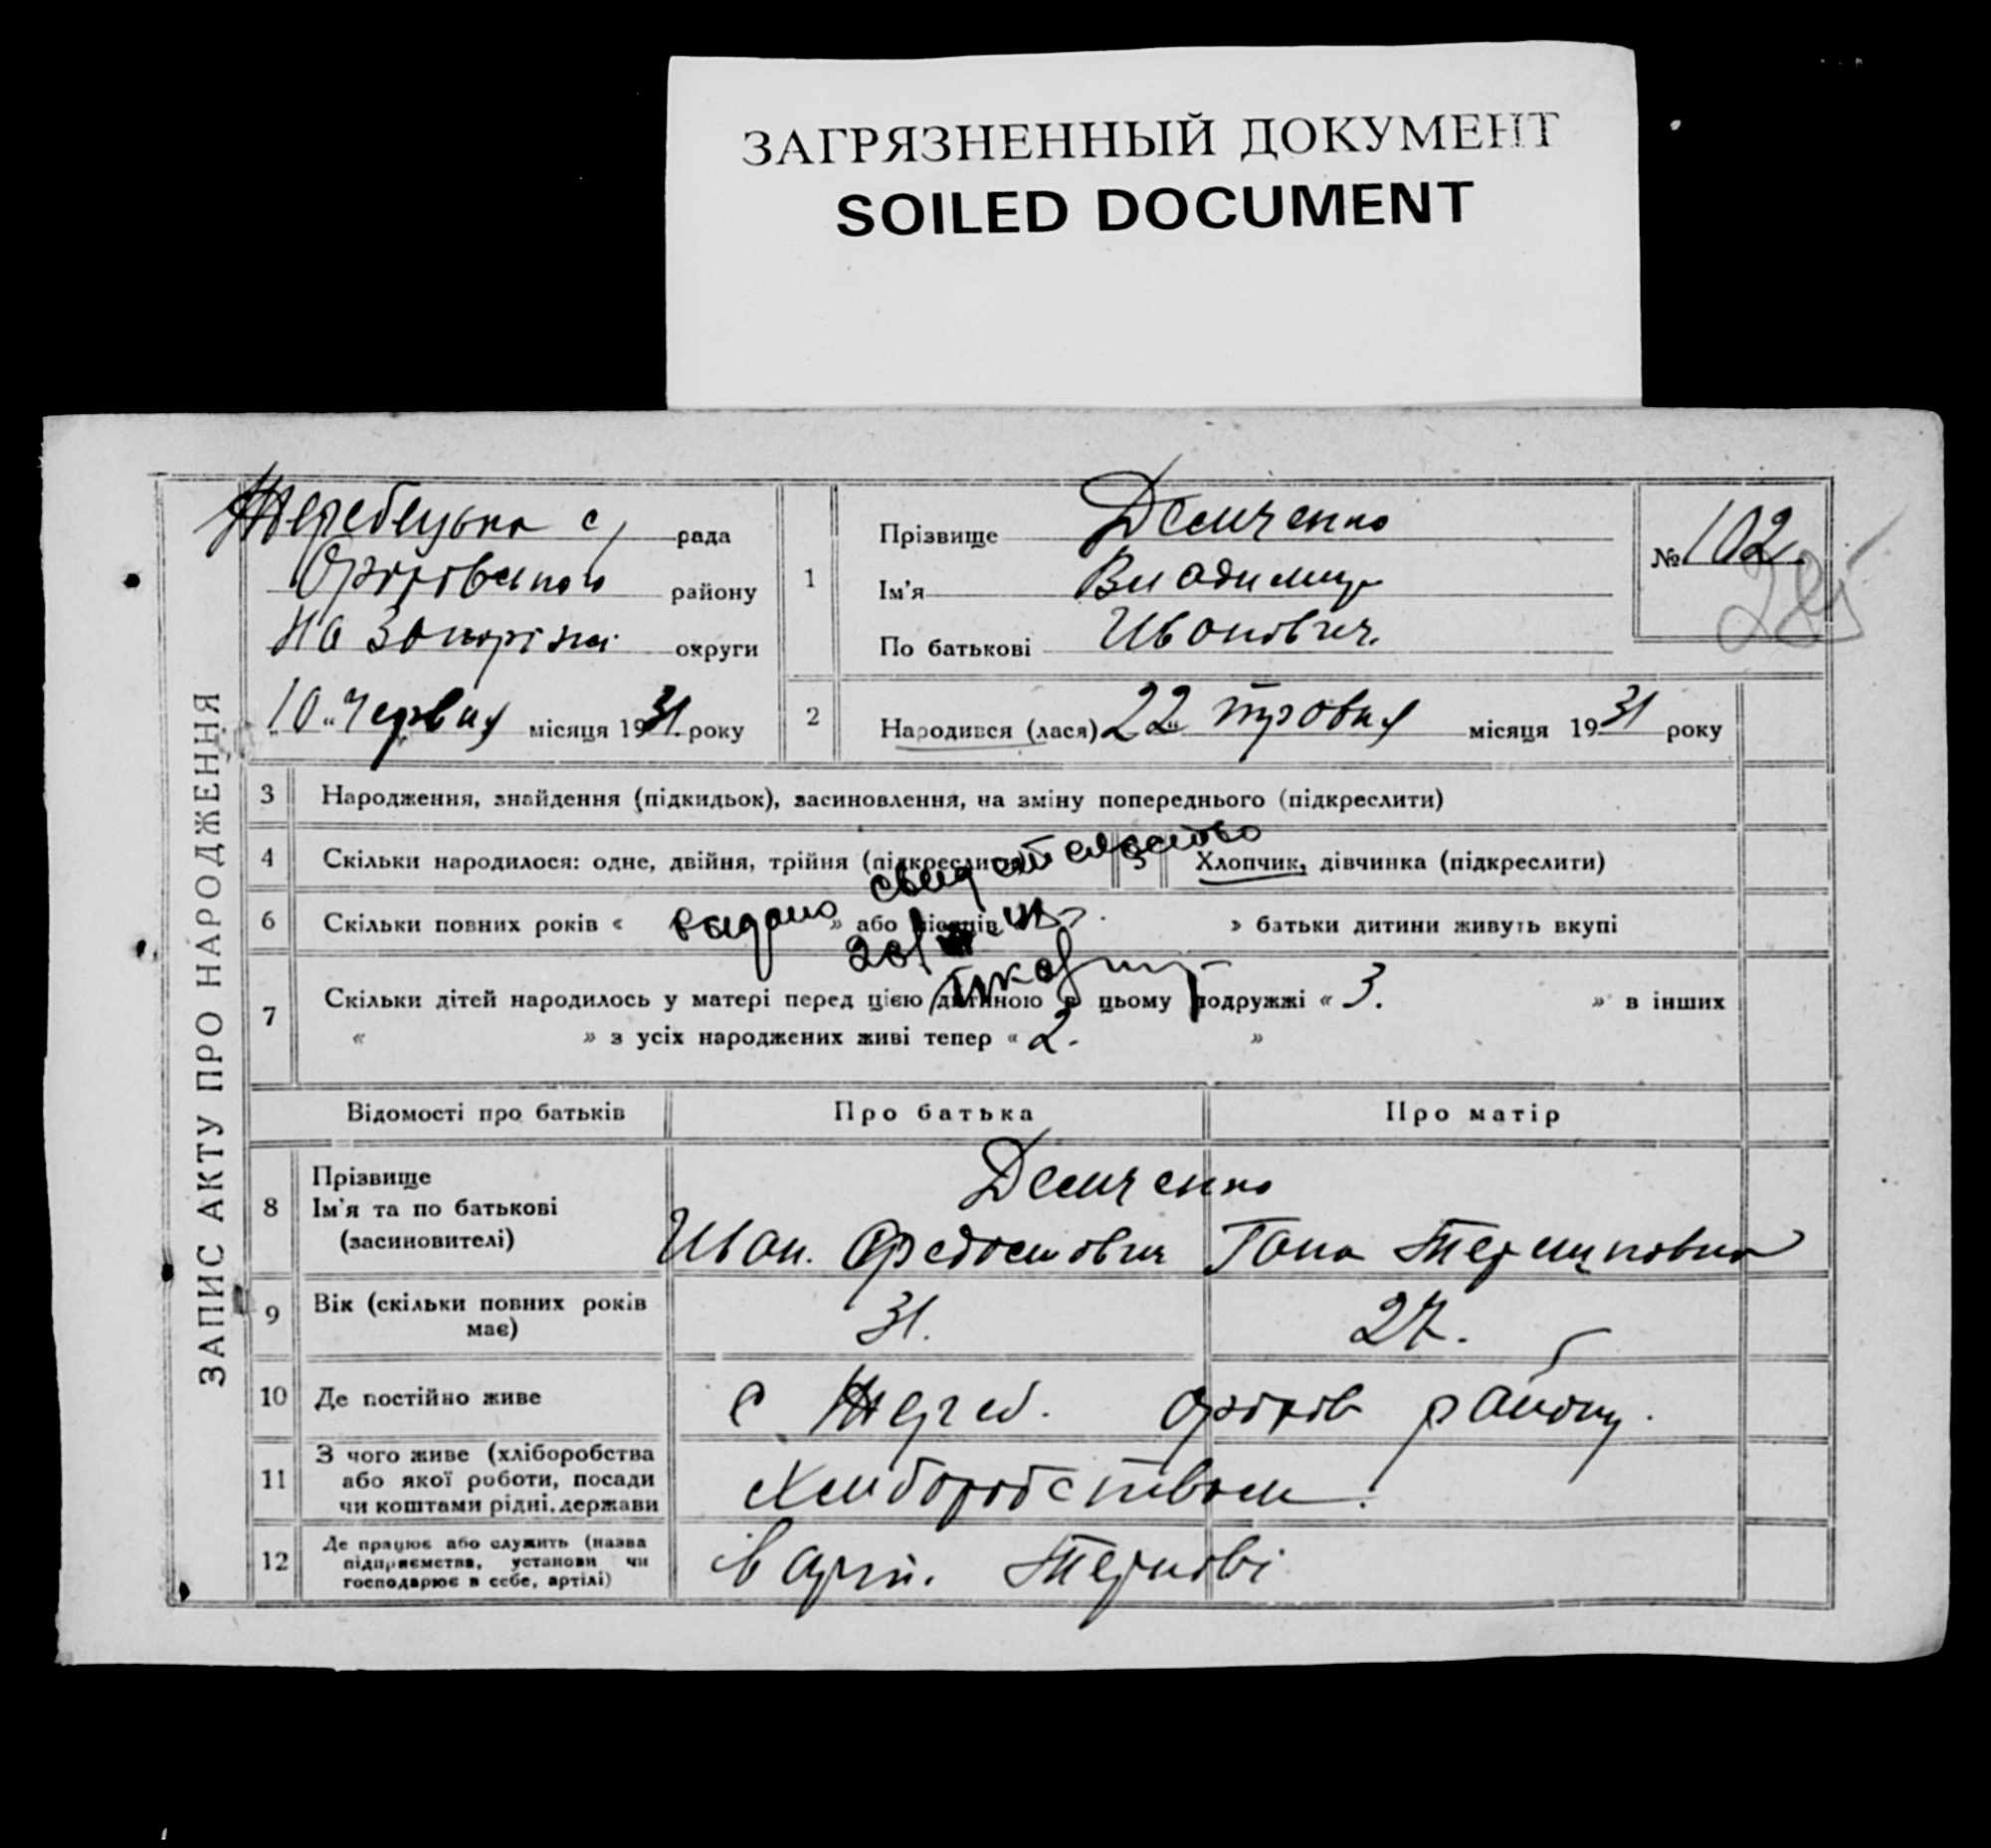 ЗАГРЯЗНЕННЫЙ ДОКУМЕНТ
SOILED DOCUMENT
ЗАПИС АКТУ ПРО НАРОДЖЕННЯ
Жеребецька с/ рада
району
на Запоріжі округи
"10" червня місяця 1931 року
1
Прізвище Демченко
Ім'я Владимир
По батькові Иванович.
№ 102
285
2
Народився (лася) 22 травня місяця 1931 року
3 Народження, знайдення (підкидьок), засиновлення, на зміну попереднього (підкреслити)
4 Скільки народилося: одне, двійня, трійня (підкреслити) 5 Хлопчик, дівчинка (підкреслити)
6 Скільки повних років « » або місяців » батьки дитини живуть вкупі
выдано свидетельство
7 Скільки дітей народилось у матері перед цією дитиною в цьому подружжі « 3. » в інших
« » з усіх народжених живі тепер « 2. »
Відомості про батьків Про батька Про матір
8 Прізвище
Ім'я та по батькові
(засиновителі)
Демченко
Иван. Федосович Гана
9 Вік (скільки повних років має) 31. 27.
10 Де постійно живе с Жереб. Оріхів району.
11 З чого живе (хліборобства
або якої роботи, посади
чи коштами рідні, держави
Хліборобством.
12 Де працює або служить (назва
підприємства, установи чи
господарює в себе, артілі)
в арт.